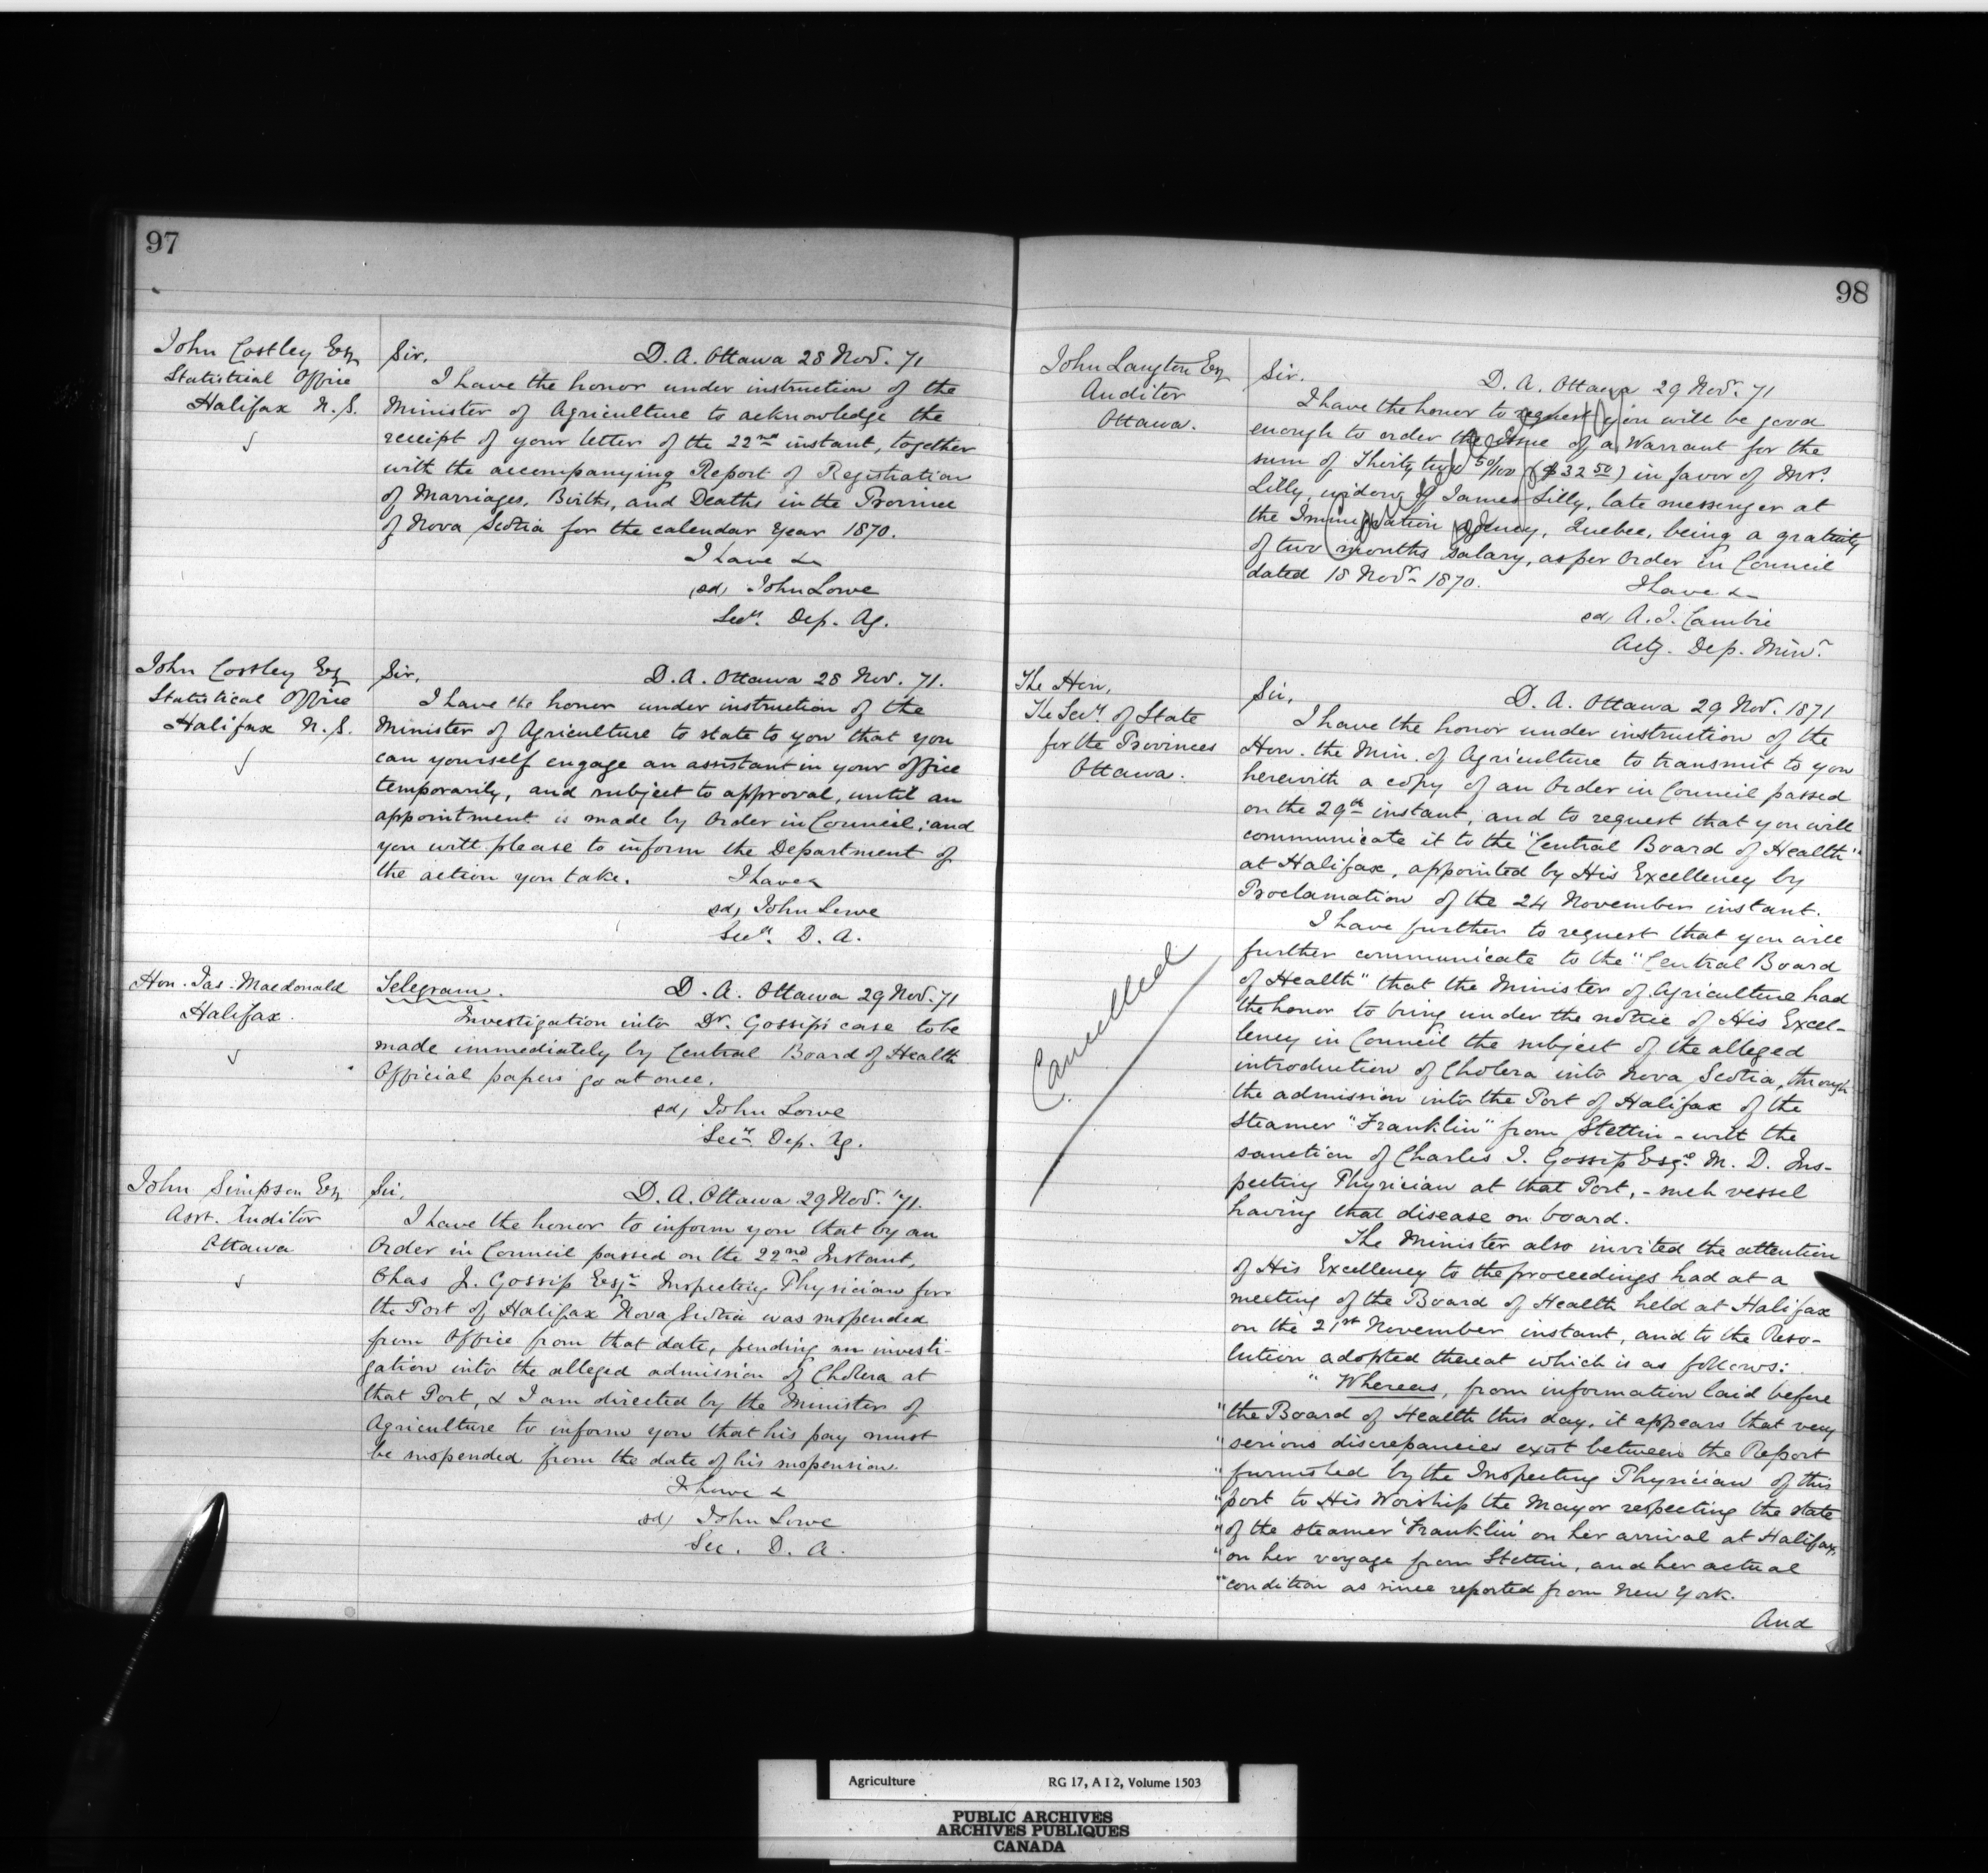 97
John Costley Esq
Statistical Office
Halifax N.S.
Sir,
D. A. Ottawa 28 Nov. 71
I have the honor under instruction of the
Minister of Agriculture to acknowledge the
receipt of your letter of the 22nd instant, together
with the accompanying Report of Registration
of Marriages, Births, and Deaths in the Province
of Nova Scotia for the calendar Year 1870.
I have &
sd, John Lowe
Secy. Dep. Ag.
John Costley Esq
Statistical Office
Halifax N.S.
Sir,
D. A. Ottawa 28 Nov. 71.
I have the honor under instruction of the
Minister of Agriculture to state to you that you
can yourself engage an assistant in your office
temporarily, and subject to approval, until an
appointment is made by Order in Council; and
you will please to inform the Department of
the action you take.
I have &
sd, John Lowe
Secy. D. A.
Hon. Jas. Macdonald
Halifax.
Telegram.
D. A. Ottawa 29 Nov. 71
Investigation into Dr. Gossip's case to be
made immediately by Central Board of Health
Official papers go at once.
sd, John Lowe
Secy. Dep. Ag.
John Simpson Esq
Asst. Auditor
Ottawa
Sir,
D. A. Ottawa 29 Nov. '71.
I have the honor to inform you that by an
Order in Council passed on the 22nd Instant,
Chas J. Gossip Esqr. Inspecting Physician for
the Port of Halifax Nova Scotia was suspended
from Office from that date, pending an investi-
gation into the alleged admission of Cholera at
that Port, & I am directed by the Minister of
Agriculture to inform you that his pay must
be suspended from the date of his suspension.
I have &
sd, John Lowe
Sec. D. A.
98
John Langton Esq
Auditor
Ottawa.
Sir.
D. A. Ottawa 29 Nov. 71
I have the honor to request you will be good
enough to order the issue of a Warrant for the
sum of Thirty two 50/100 ($32 50) in favor of Mrs.
Lilly, widow of James Lilly, late messenger at
the Immigration Agency, Quebec, being a gratuity
of two months salary, as per Order in Council
dated 18 Novr. 1870.
I have &
sd, A. J. Cambie
Actg. Dep. Minr.
The Hon.
The Secy. of State
for the Provinces
Ottawa.
Sir,
D. A. Ottawa 29 Nov. 1871
I have the honor under instruction of the
Hon. the Min. of Agriculture to transmit to you
herewith a copy of an Order in Council passed
on the 29th instant, and to request that you will
communicate it to the "Central Board of Health"
at Halifax, appointed by His Excellency by
Proclamation of the 24 November instant.
I have further to request that you will
further communicate to the "Central Board
of Health" that the Minister of Agriculture had
the honor to bring under the notice of His Excel-
lency in Council the subject of the alleged
introduction of Cholera into Nova Scotia, through
the admission into the Port of Halifax of the
steamer "Franklin" from Stettin - with the
sanction of Charles J. Gossip Esqre. M. D. Ins-
pecting Physician at that Port, - such vessel
having that disease on board.
Cancelled
The Minister also invited the attention
of His Excellency to the proceedings had at a
meeting of the Board of Health held at Halifax
on the 21st November instant, and to the Reso-
lution adopted thereat which is as follows:
"Whereas, from information laid before
"the Board of Health this day, it appears that very
"serious discrepancies exist between the Report
"furnished by the Inspecting Physician of this
"port to His Worship the Mayor respecting the state
"of the steamer 'Franklin' on her arrival at Halifax,
"on her voyage from Stettin, and her actual
"condition as since reported from New York.
And
Agriculture RG 17, A I 2, Volume 1503
PUBLIC ARCHIVES
ARCHIVES PUBLIQUES
CANADA